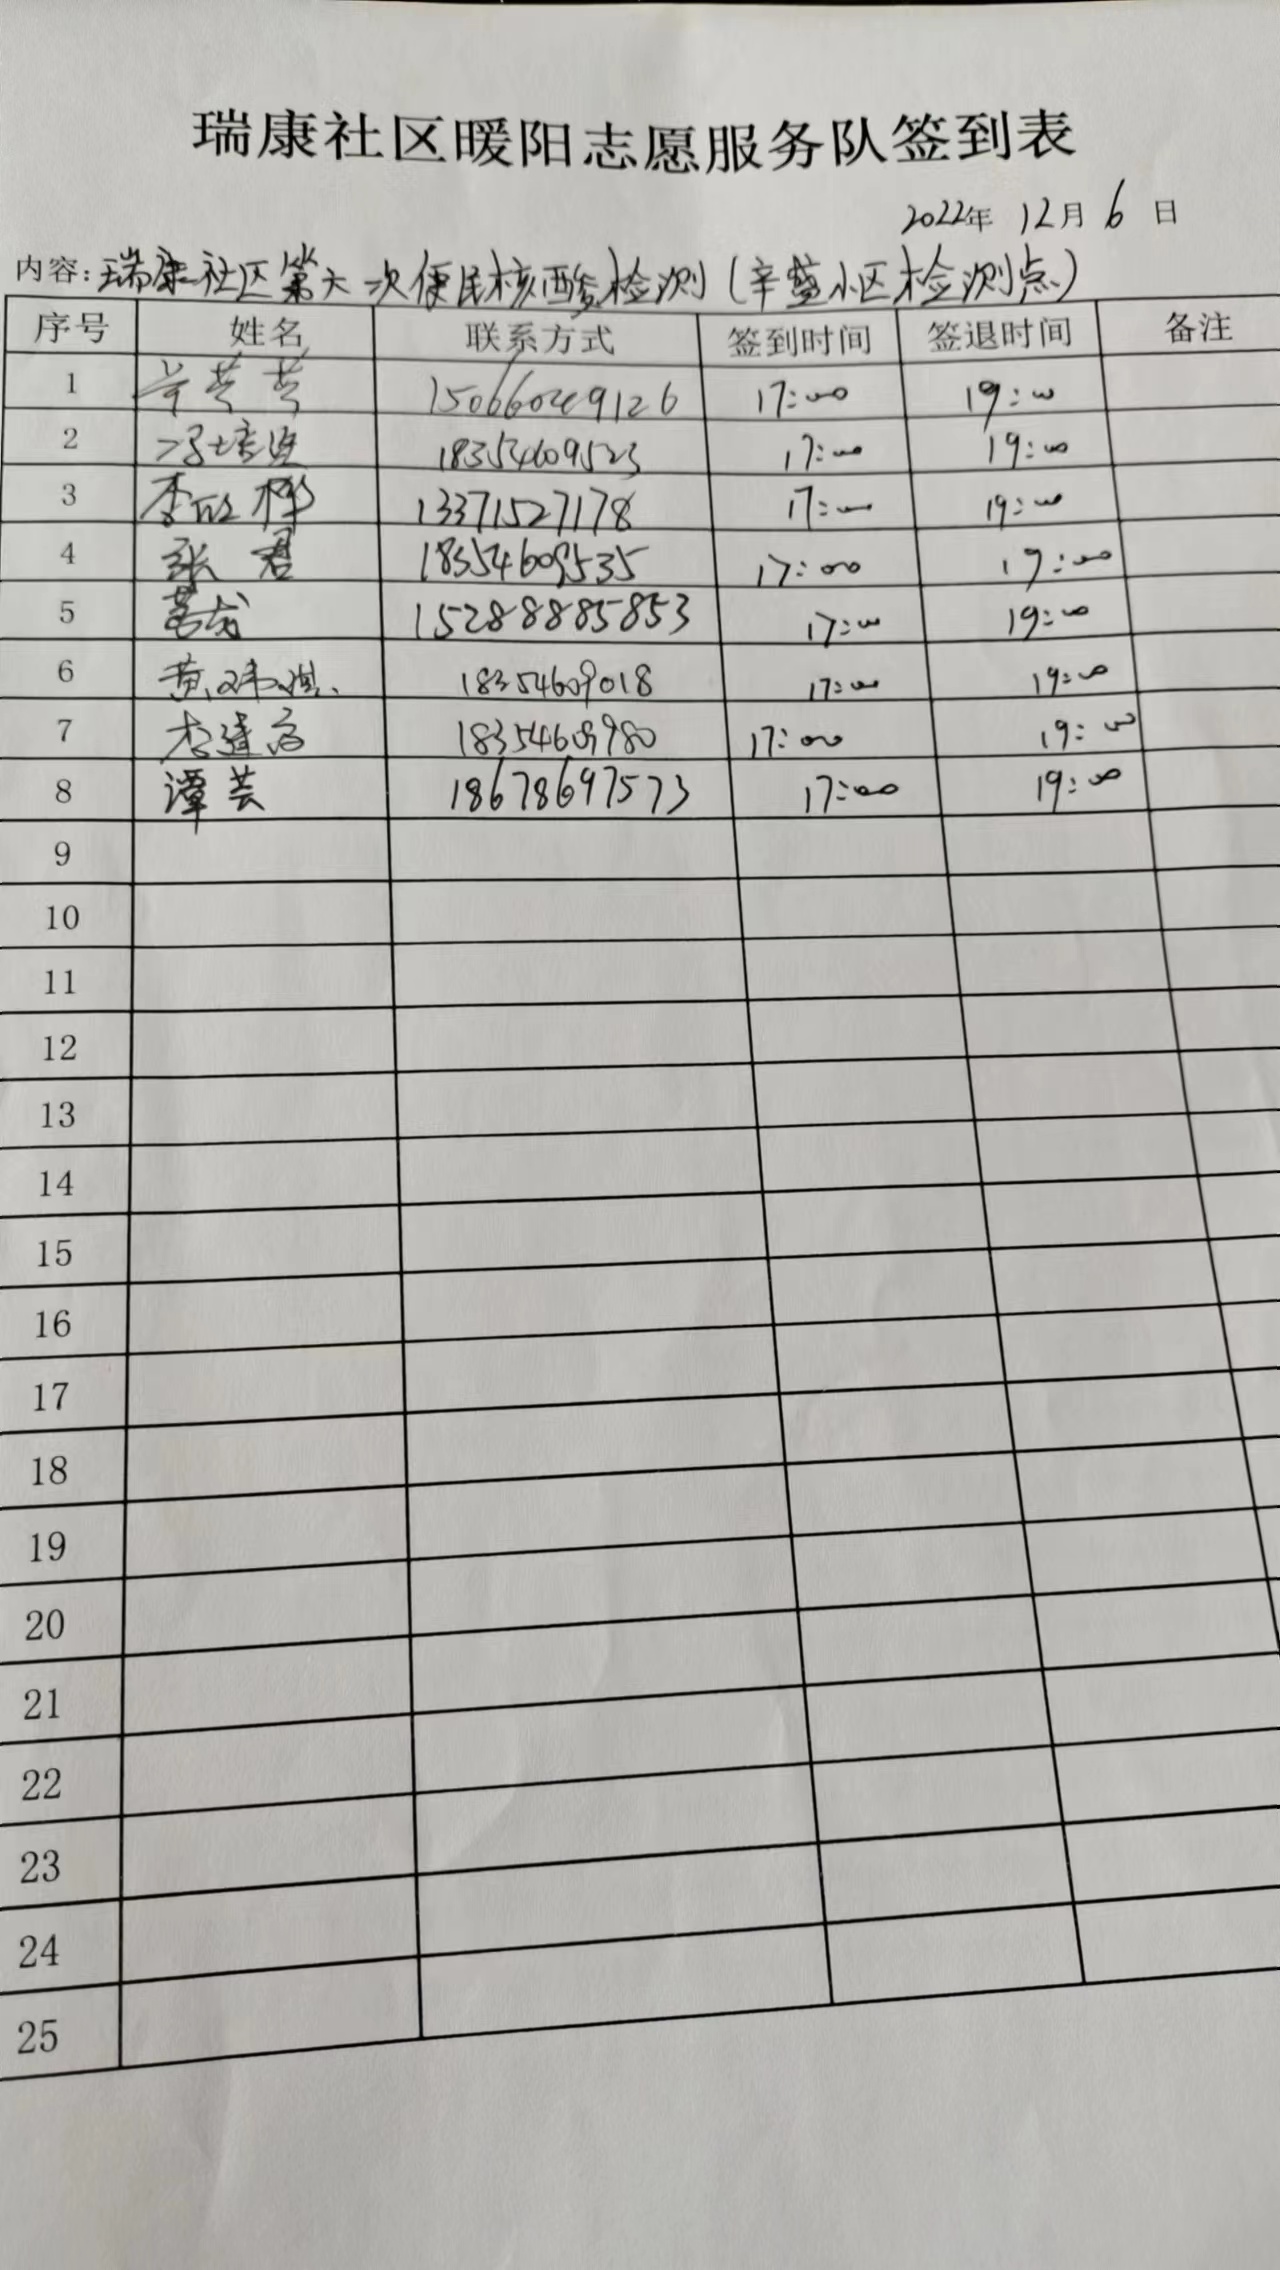 瑞康社区暖阳志愿服务队签到表
2022年 12月 6 日
内容：瑞康社区第六次便民核酸检测（辛盛小区检测点）
序号 姓名 联系方式 签到时间 签退时间 备注
1 17:00 19:00
2 18354609523 17:00 19:00
3 13371527178 17:00 19:00
4 张君 18354609535 17:00 19:00
5 15288885853 17:00 19:00
6 18354609018 17:00 19:00
7 18354609980 17:00 19:00
8 谭芸 18678697573 17:00 19:00
9
10
11
12
13
14
15
16
17
18
19
20
21
22
23
24
25